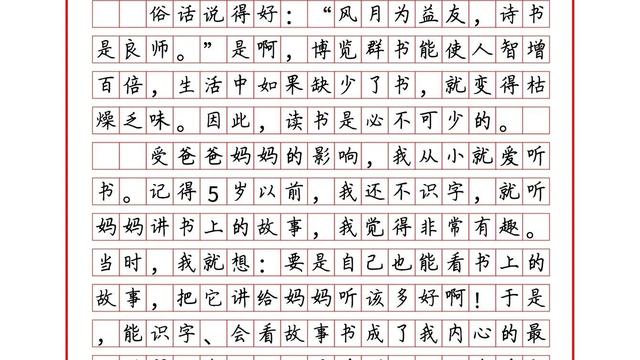 俗话说得好：“风月为益友，诗书
是良师。”是啊，博览群书能使人智增
百倍，生活中如果缺少了书，就变得枯
燥乏味。因此，读书是必不可少的。
受爸爸妈妈的影响，我从小就爱听
书。记得5岁以前，我还不识字，就听
妈妈讲书上的故事，我觉得非常有趣。
当时，我就想：要是自己也能看书上的
故事，把它讲给妈妈听该多好啊！于是
，能识字、会看故事书成了我内心的最